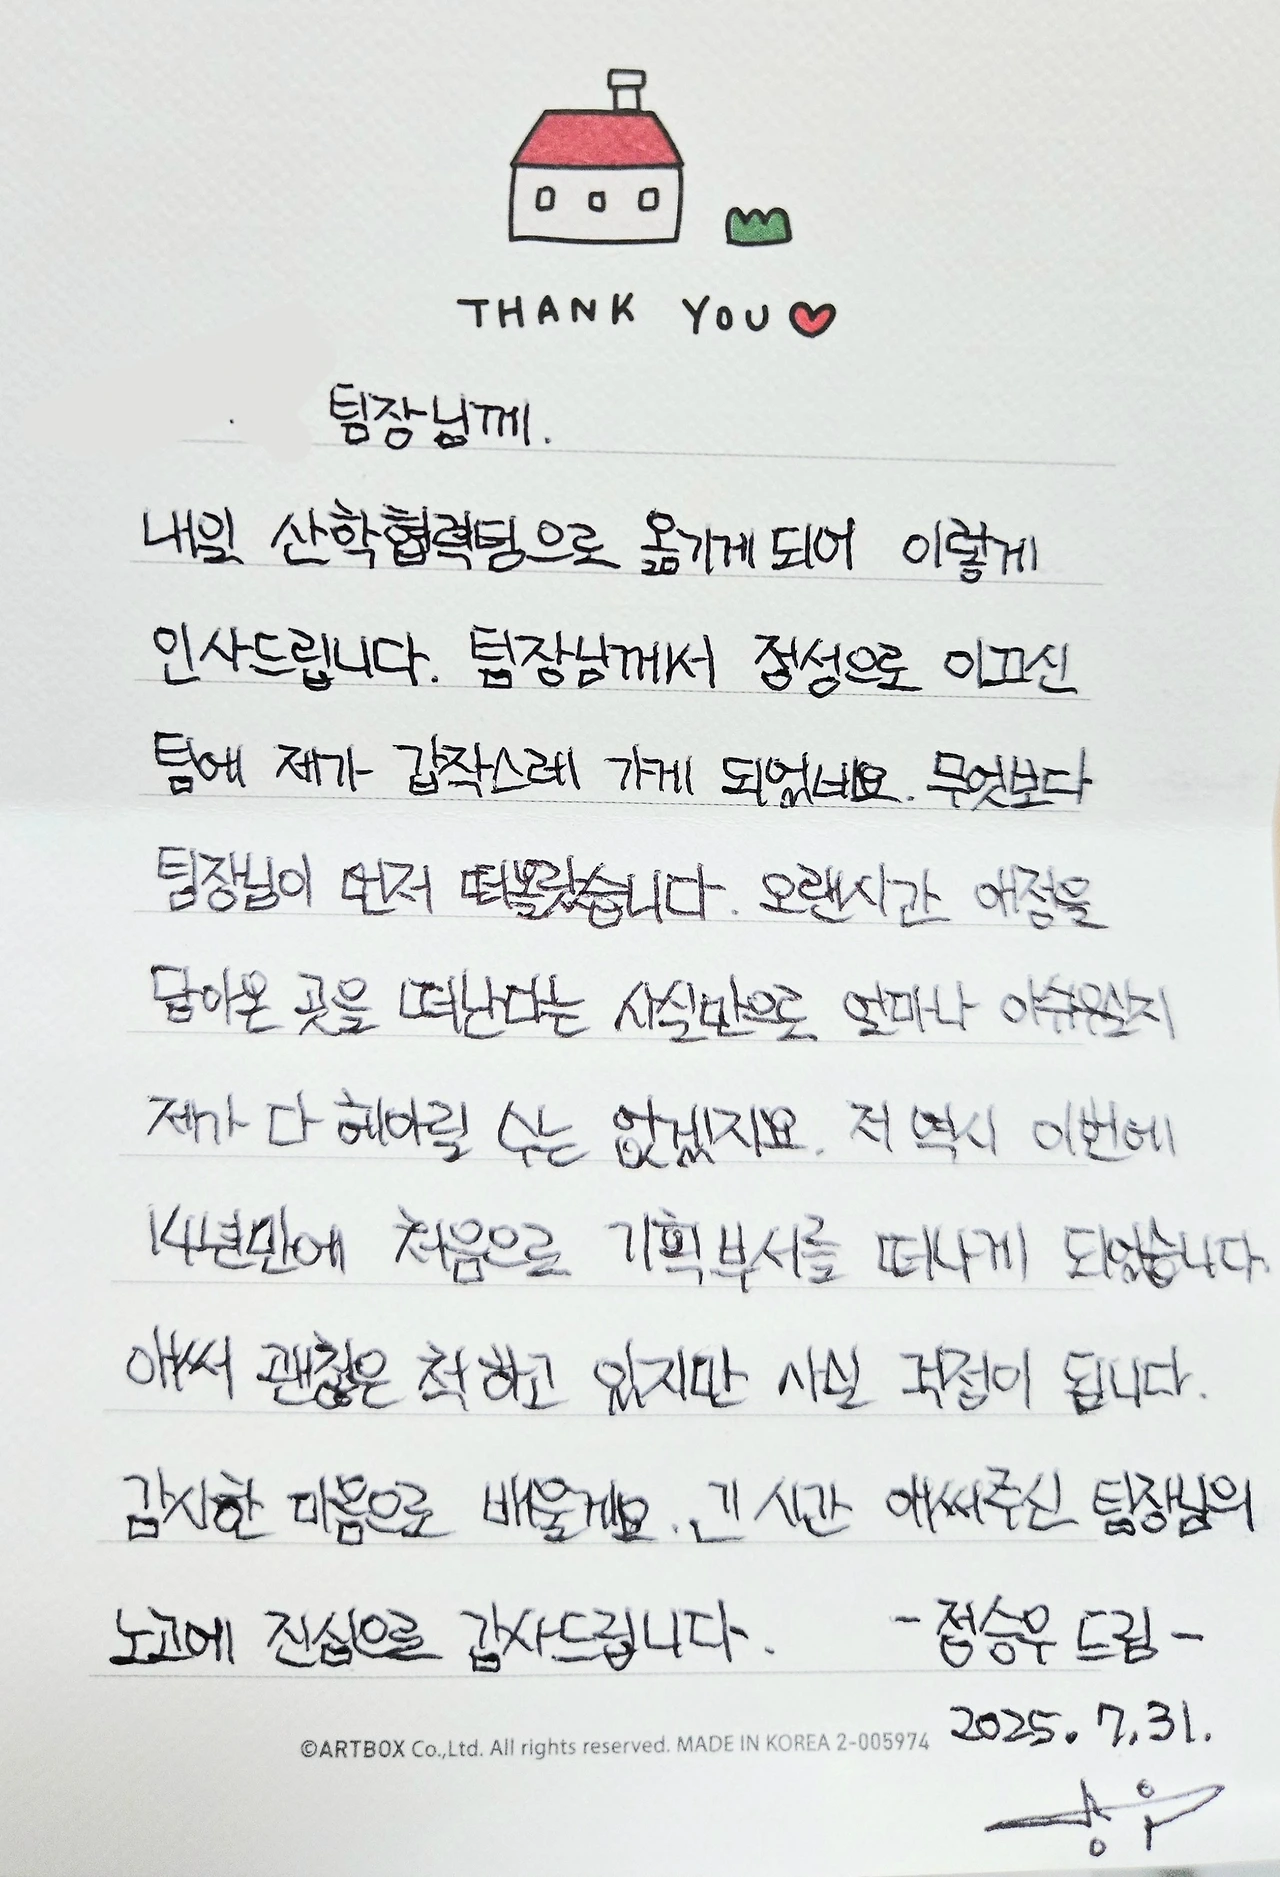 THANK YOU
팀장님께.
내일 산학협력팀으로 옮기게 되어 이렇게
인사드립니다. 팀장님께서 정성으로 이끄신
팀에 제가 갑작스레 가게 되었네요. 무엇보다
팀장님이 먼저 떠올랐습니다. 오랜시간 애정을
담아온 곳을 떠난다는 사실만으로 얼마나 아쉬우실지
제가 다 헤아릴 수는 없겠지요. 저 역시 이번에
14년만에 처음으로 기획부서를 떠나게 되었습니다.
애써 괜찮은 척 하고 있지만 사실 걱정이 됩니다.
감사한 마음으로 배울게요. 긴 시간 애써주신 팀장님의
노고에 진심으로 감사드립니다. -정승우 드림-
2025. 7. 31.
©ARTBOX Co.,Ltd. All rights reserved. MADE IN KOREA 2-005974
승우